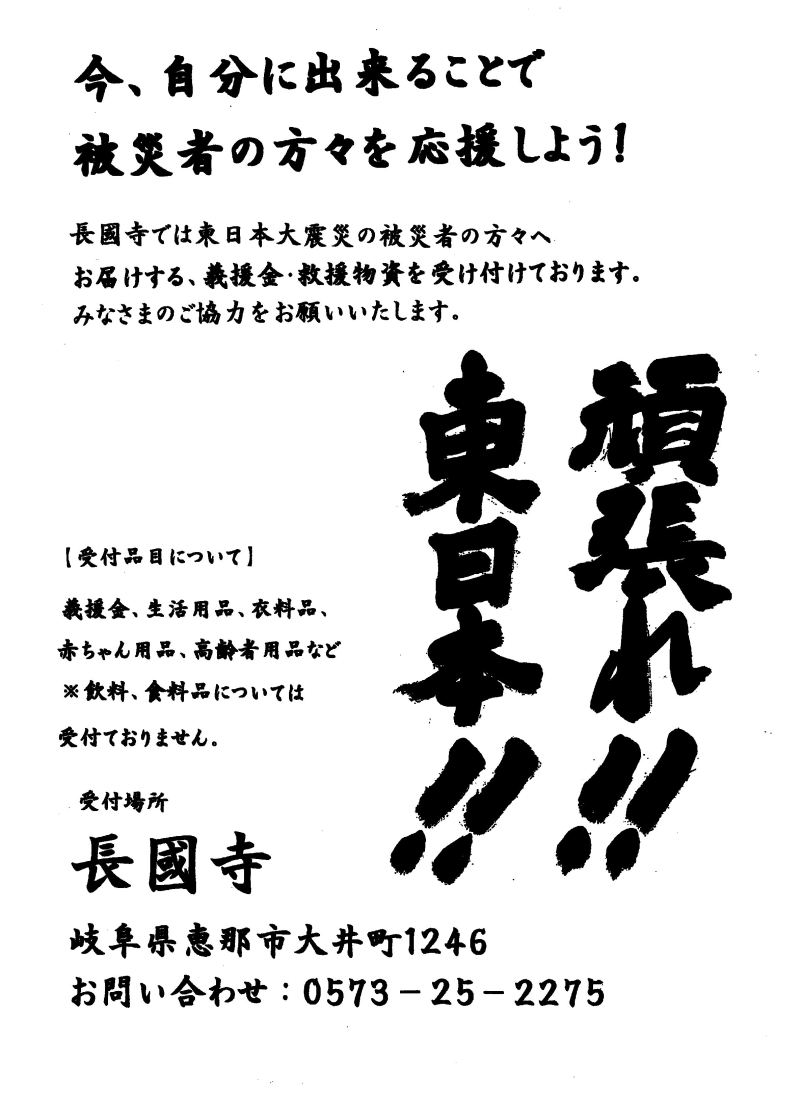 今、自分に出来ることで
被災者の方々を応援しよう!
長國寺では東日本大震災の被災者の方々へ
お届けする、義援金・救援物資を受け付けております。
みなさまのご協力をお願いいたします。
頑張れ!!
東日本!!
【受付品目について】
義援金、生活用品、衣料品、
赤ちゃん用品、高齢者用品など
※飲料、食料品については
受付ておりません。
受付場所
長國寺
岐阜県恵那市大井町1246
お問い合わせ:0573-25-2275